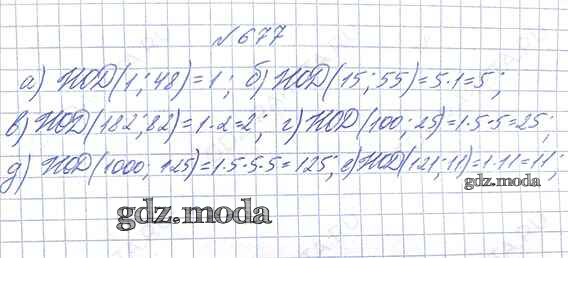 №677
а) НОД(1; 48)=1; б) НОД(15; 55)=5·1=5;
в) НОД(182; 82)=1·2=2; г) НОД(100; 25)=1·5·5=25;
д) НОД(1000; 125)=1·5·5·5=125; е) НОД(121; 11)=1·11=11;
gdz.moda
gdz.moda